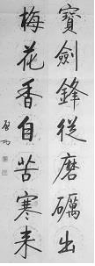 寶劍鋒從磨礪出
梅花香自苦寒来
啟功